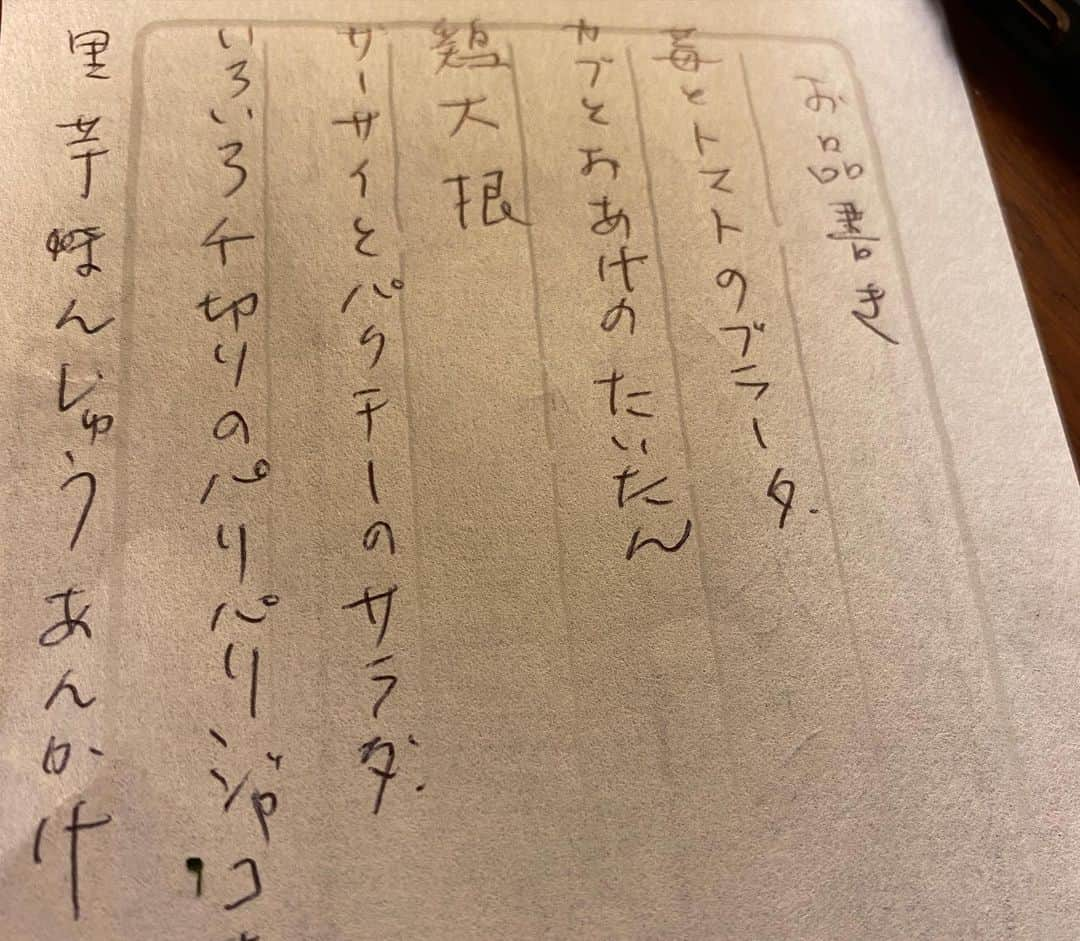 お品書き
苺とトマトのブラータ
カブとおあげのたいたん
鶏大根
ザーサイとパクチーのサラダ
いろいろ千切りのパリパリジャコ
里芋まんじゅうあんかけ